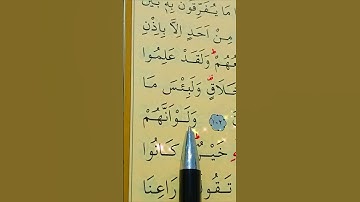 مَا يُفَرِّقُونَ بِهِ بَيْنَ
مِنْ اَحَدٍ اِلَّا بِاِذْنِ
وَلَقَدْ عَلِمُوا
وَلَبِئْسَ مَا
١٠٢ وَلَوْ اَنَّهُمْ
خَيْرٌ كَانُوا
تَقُولُوا رَاعِنَا